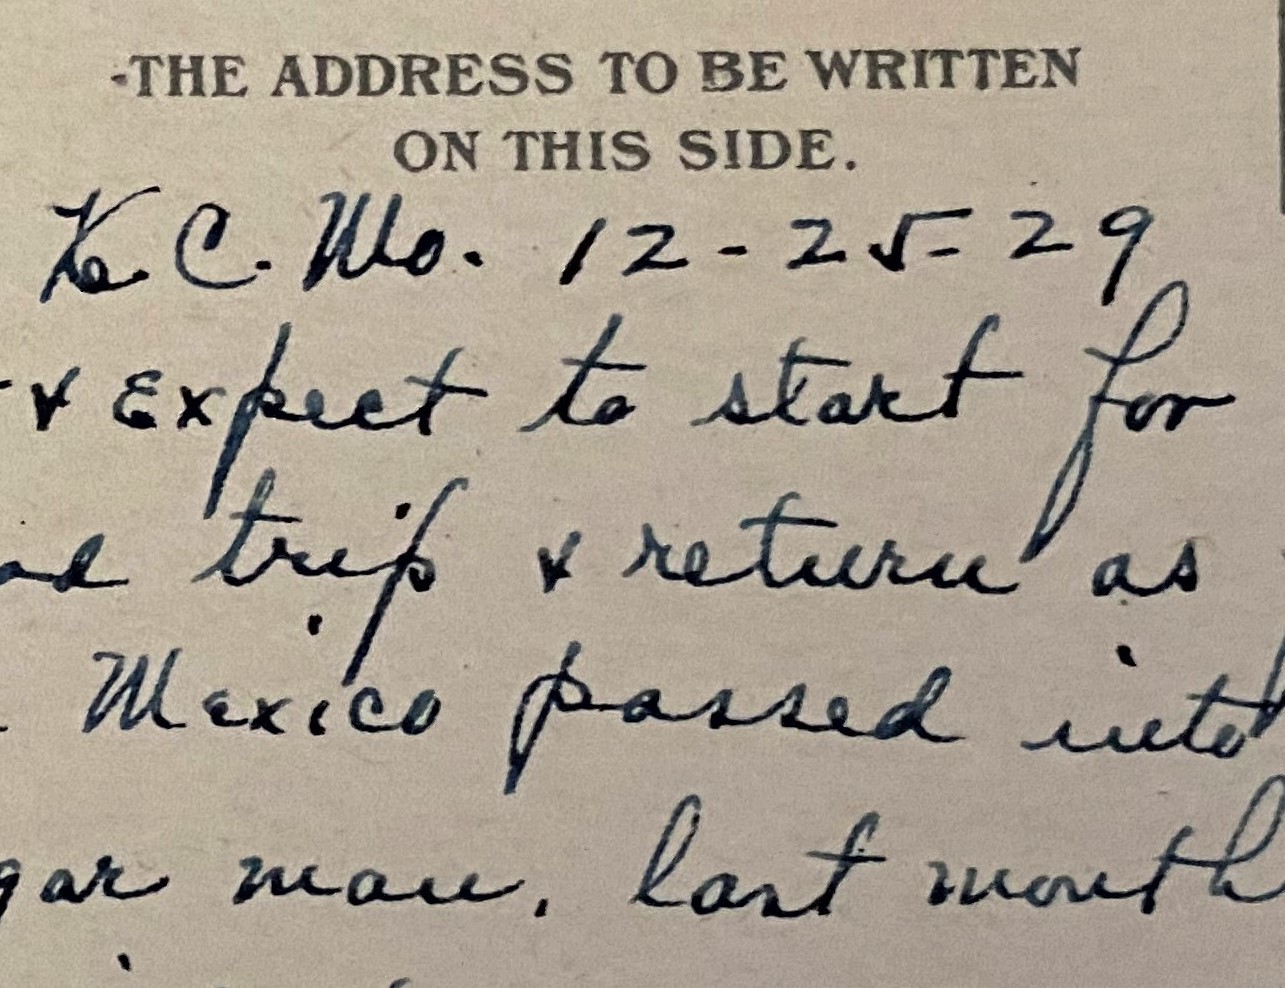 THE ADDRESS TO BE WRITTEN
ON THIS SIDE.
K. C. Mo. 12-25-29
& Expect to start for
trip & return as
Mexico passed into
gar man, last month